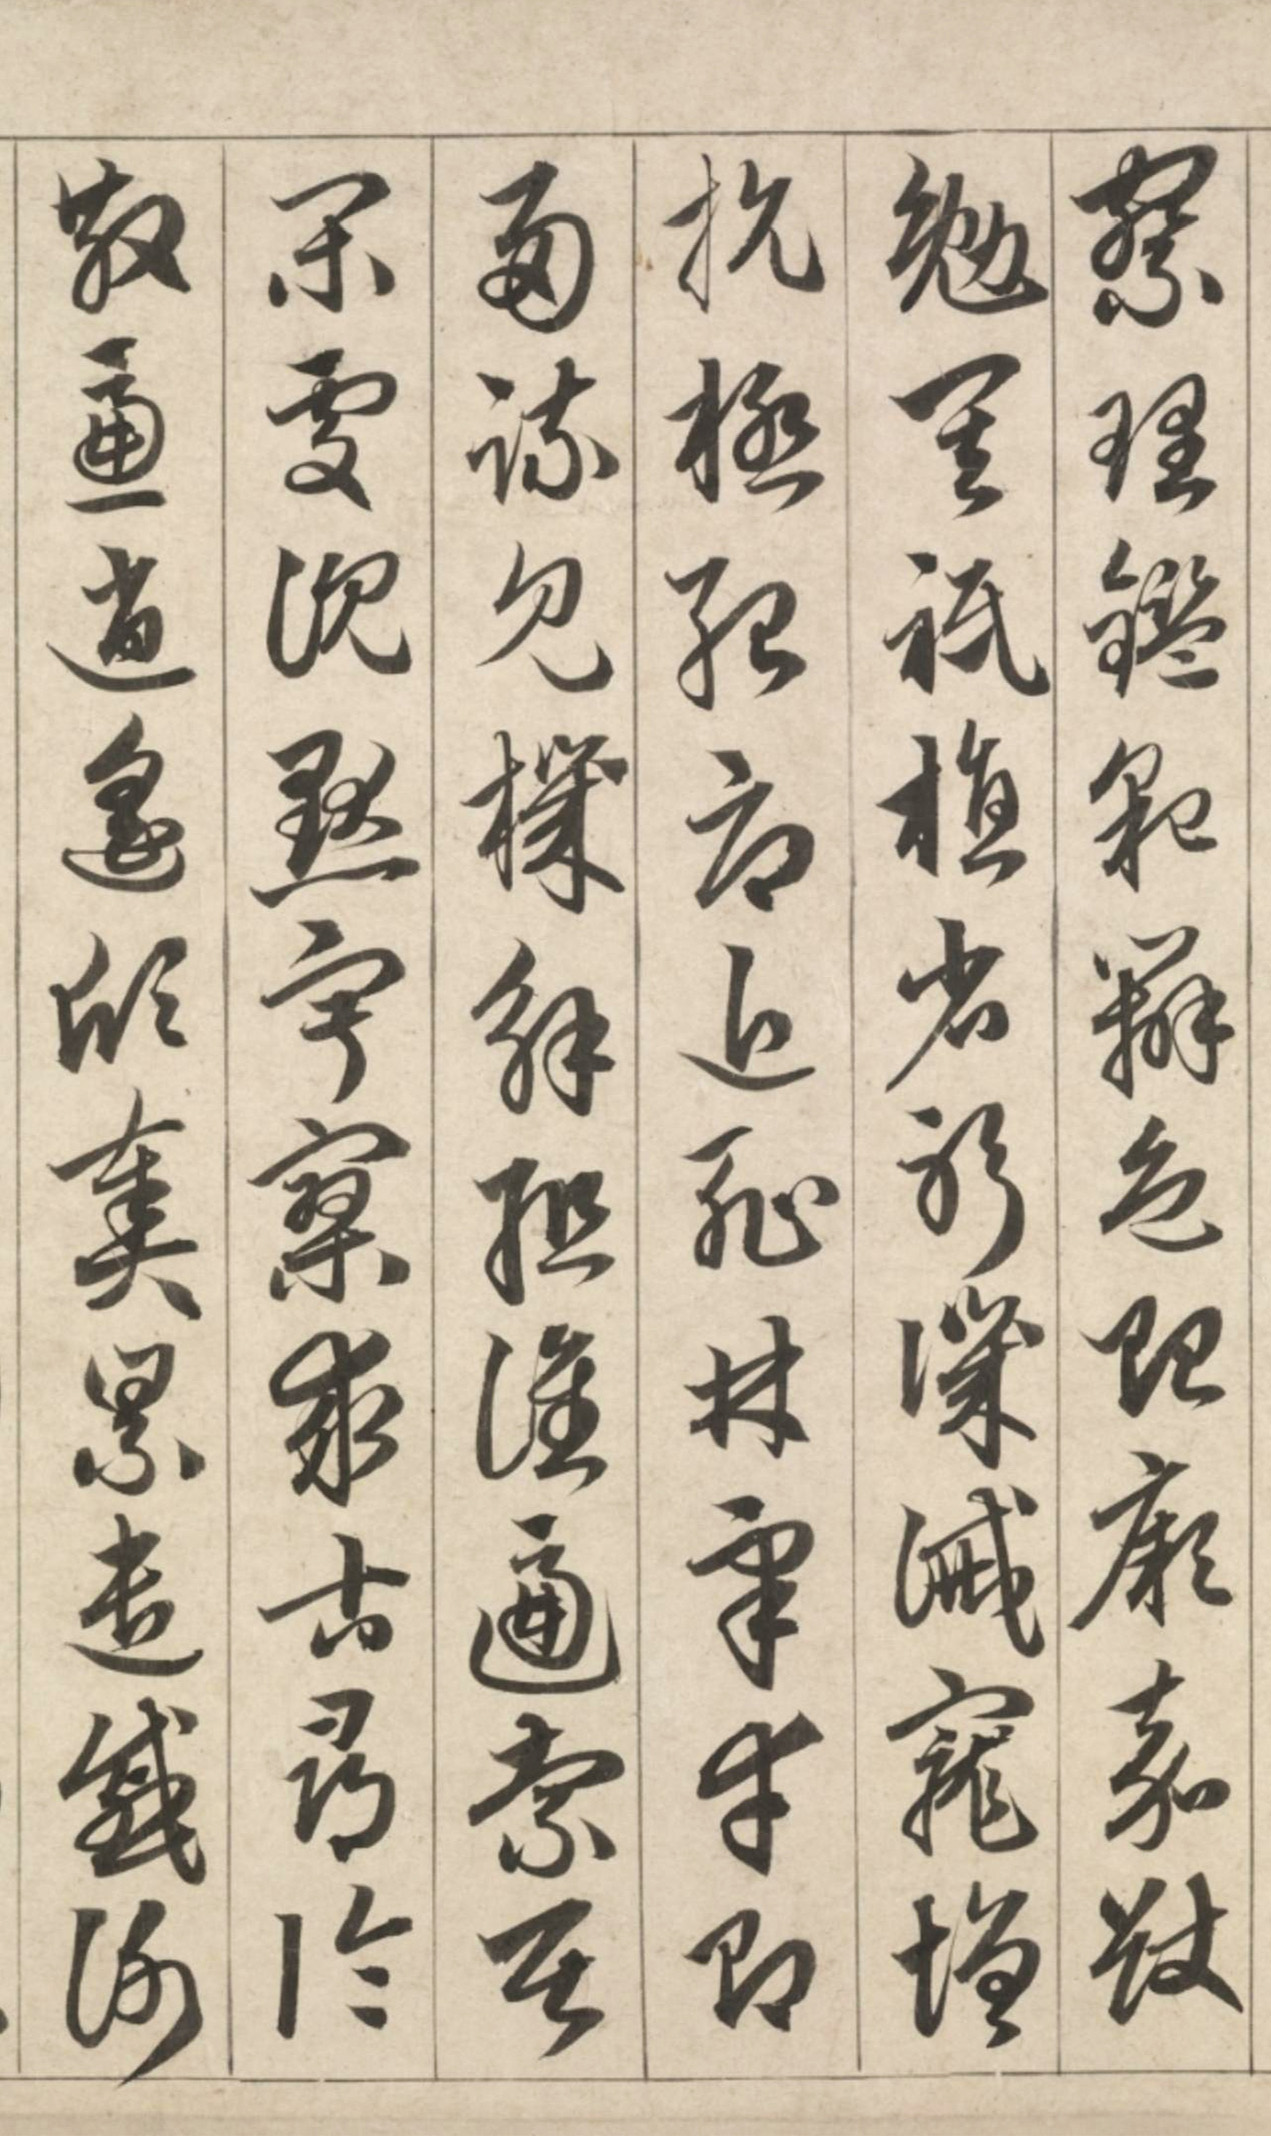 察理鑑貌辨色貽厥嘉猷
勉其祗植省躬譏誡寵增
抗極殆辱近恥林皋幸即
兩疏見機解組誰逼索居
閑處沉默寂寥求古尋論
散慮逍遙欣奏累遣慼謝